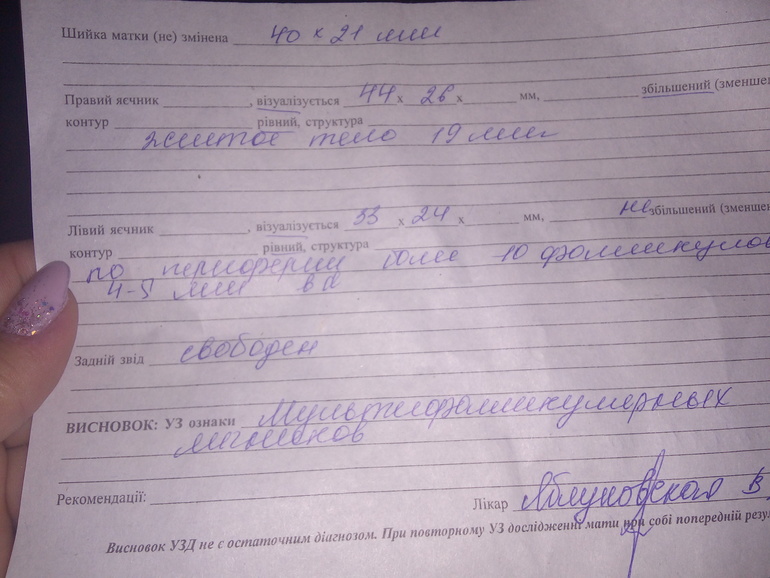 Шийка матки (не) змінена 40 х 21 мм
Правий яєчник , візуалізується 44 х 26 х мм, збільшений (зменше
контур рівний, структура
желтое тело 19 мм
Лівий яєчник , візуалізується 33 х 24 х мм, не збільшений (зменше
контур рівний, структура
по периферии более 10 фолликулов
4-5 мм в п
Задній звід свободен
ВИСНОВОК: УЗ ознаки Мультифолликулярных
яичников
Рекомендації:
Лікар
Висновок УЗД не є остаточним діагнозом. При повторному УЗ дослідженні мати при собі попередній резу